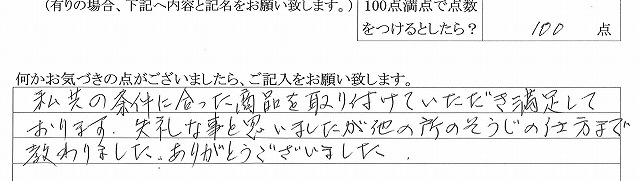 (有りの場合、下記へ内容と記名をお願い致します。)
100点満点で点数
をつけるとしたら? 100 点
何かお気づきの点がございましたら、ご記入をお願い致します。
私共の条件に合った商品を取り付けていただき満足して
おります。失礼な事と思いましたが他の所のそうじの仕方まで
教わりました。ありがとうございました。